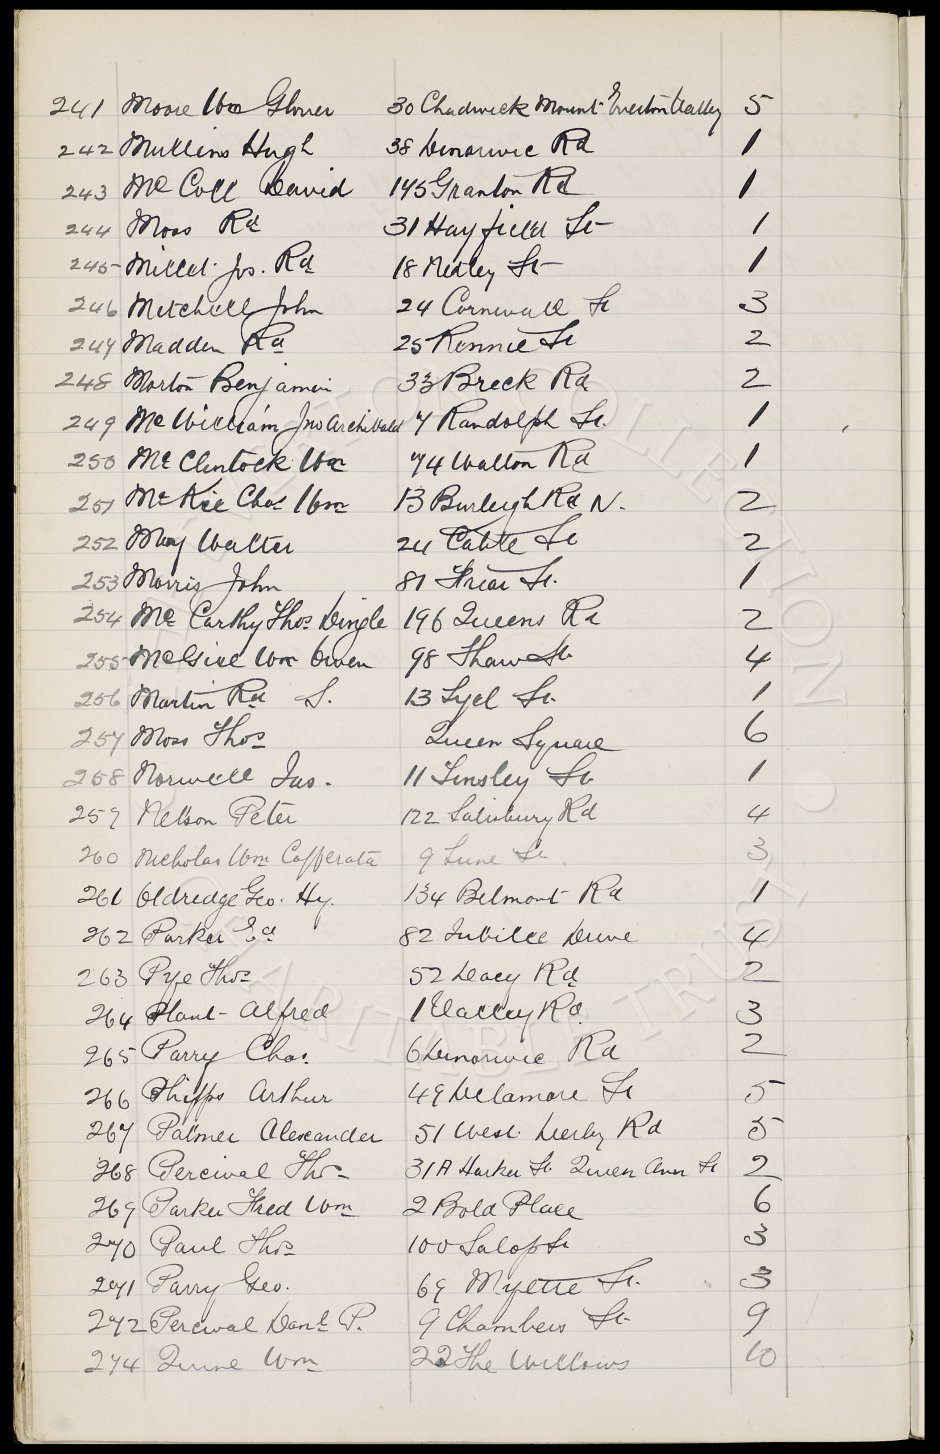 241 Moore Wm Glover 30 Chadwick Mount Everton Valley 5
242 Mullins Hugh 38 Dinorwic Rd 1
243 Mc Coll David 145 Granton Rd 1
244 Moss Rd 31 Hayfield St 1
245 Millet Jos. Rd 18 Netley St 1
246 Mitchell John 24 Cornwall St 3
247 Madden Rd 25 Rennie St 2
248 Morton Benjamin 33 Breck Rd 2
249 Mc William Jno Archibald 7 Randolph St. 1
250 Mc Clintock Wm 74 Walton Rd 1
251 Mc Kie Chas Wm 13 Burleigh Rd N. 2
252 May Walter 24 St 2
253 Morris John 81 Friar St. 1
254 Mc Carthy Thos Dingle 196 Queens Rd 2
255 Wm Owen 98 Shaw St 4
256 Martin Rd S. 13 Lyel St. 1
257 Moss Thos Queen Square 6
258 Norwell Jas. 11 Tinsley St 1
259 Nelson Peter 122 Salisbury Rd 4
260 Nicholas Wm Cafferata 9 Lune St. 3
261 Oldredge Geo. Hy. 134 Belmont Rd 1
262 Parker Ed 82 Jubilee Drive 4
263 Pye Thos 52 Dacy Rd 2
264 Plant Alfred 1 Valley Rd 3
265 Parry Chas. 6 Dinorwic Rd 2
266 Phipps Arthur 49 Delamore St 5
267 Palmer Alexander 51 West Derby Rd 5
268 Percival Thos 31A Harker St Queen Ann St 2
269 Parker Fred Wm 2 Bold Place 6
270 Paul Thos 100 Salop St 3
271 Parry Geo. 69 Myrtle St. 3
272 Percival Danl P. 9 Chambers St 9
274 Quine Wm 22 The Willows 10
COLLECTION
CHARITABLE TRUST